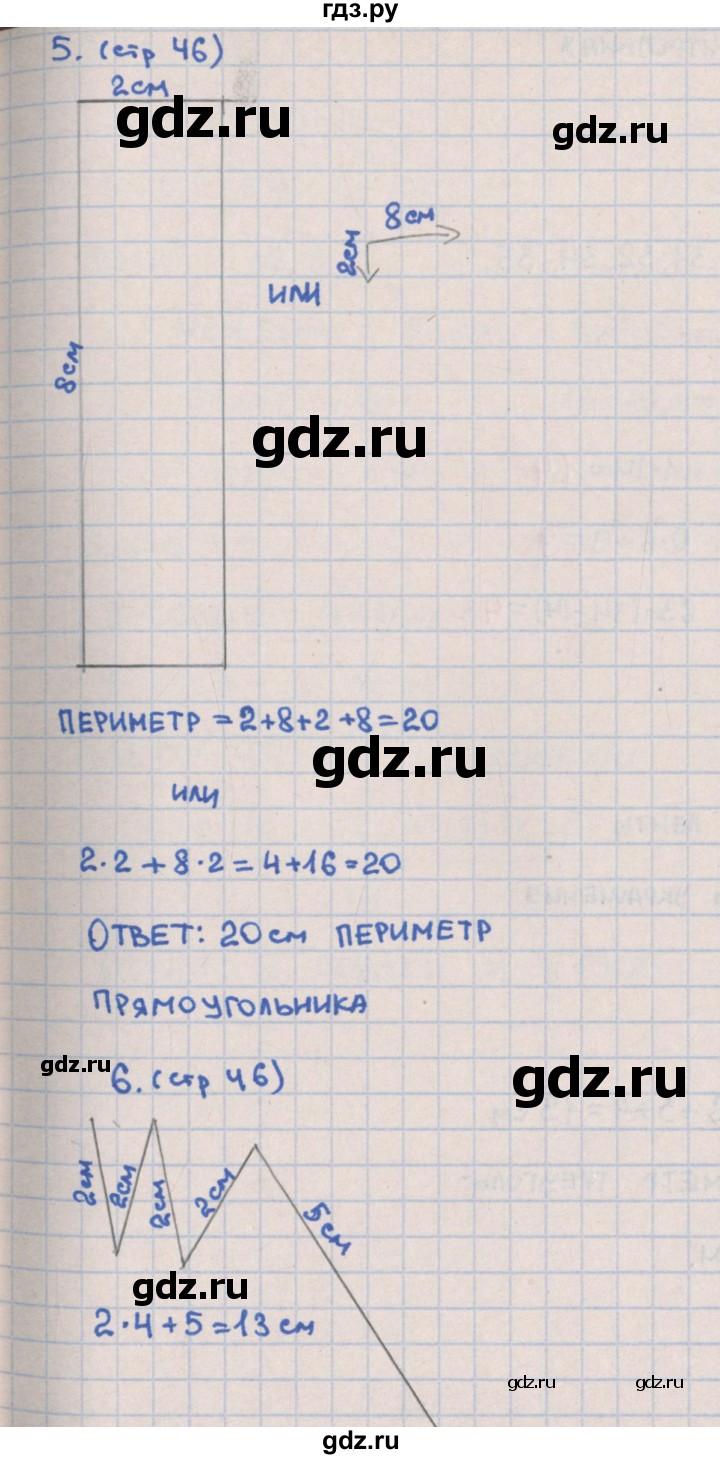 гдз.ру
5. (стр 46)
2см
gdz.ru
gdz.ru
8см
2см
или
8см
gdz.ru
ПЕРИМЕТР = 2+8+2+8=20
gdz.ru
или
2·2+8·2=4+16=20
ОТВЕТ: 20см ПЕРИМЕТР
ПРЯМОУГОЛЬНИКА
gdz.ru
6. (стр 46)
gdz.ru
2см
2см
2см
2см
5см
gdz.ru
2·4+5=13см
gdz.ru
gdz.ru
gdz.ru